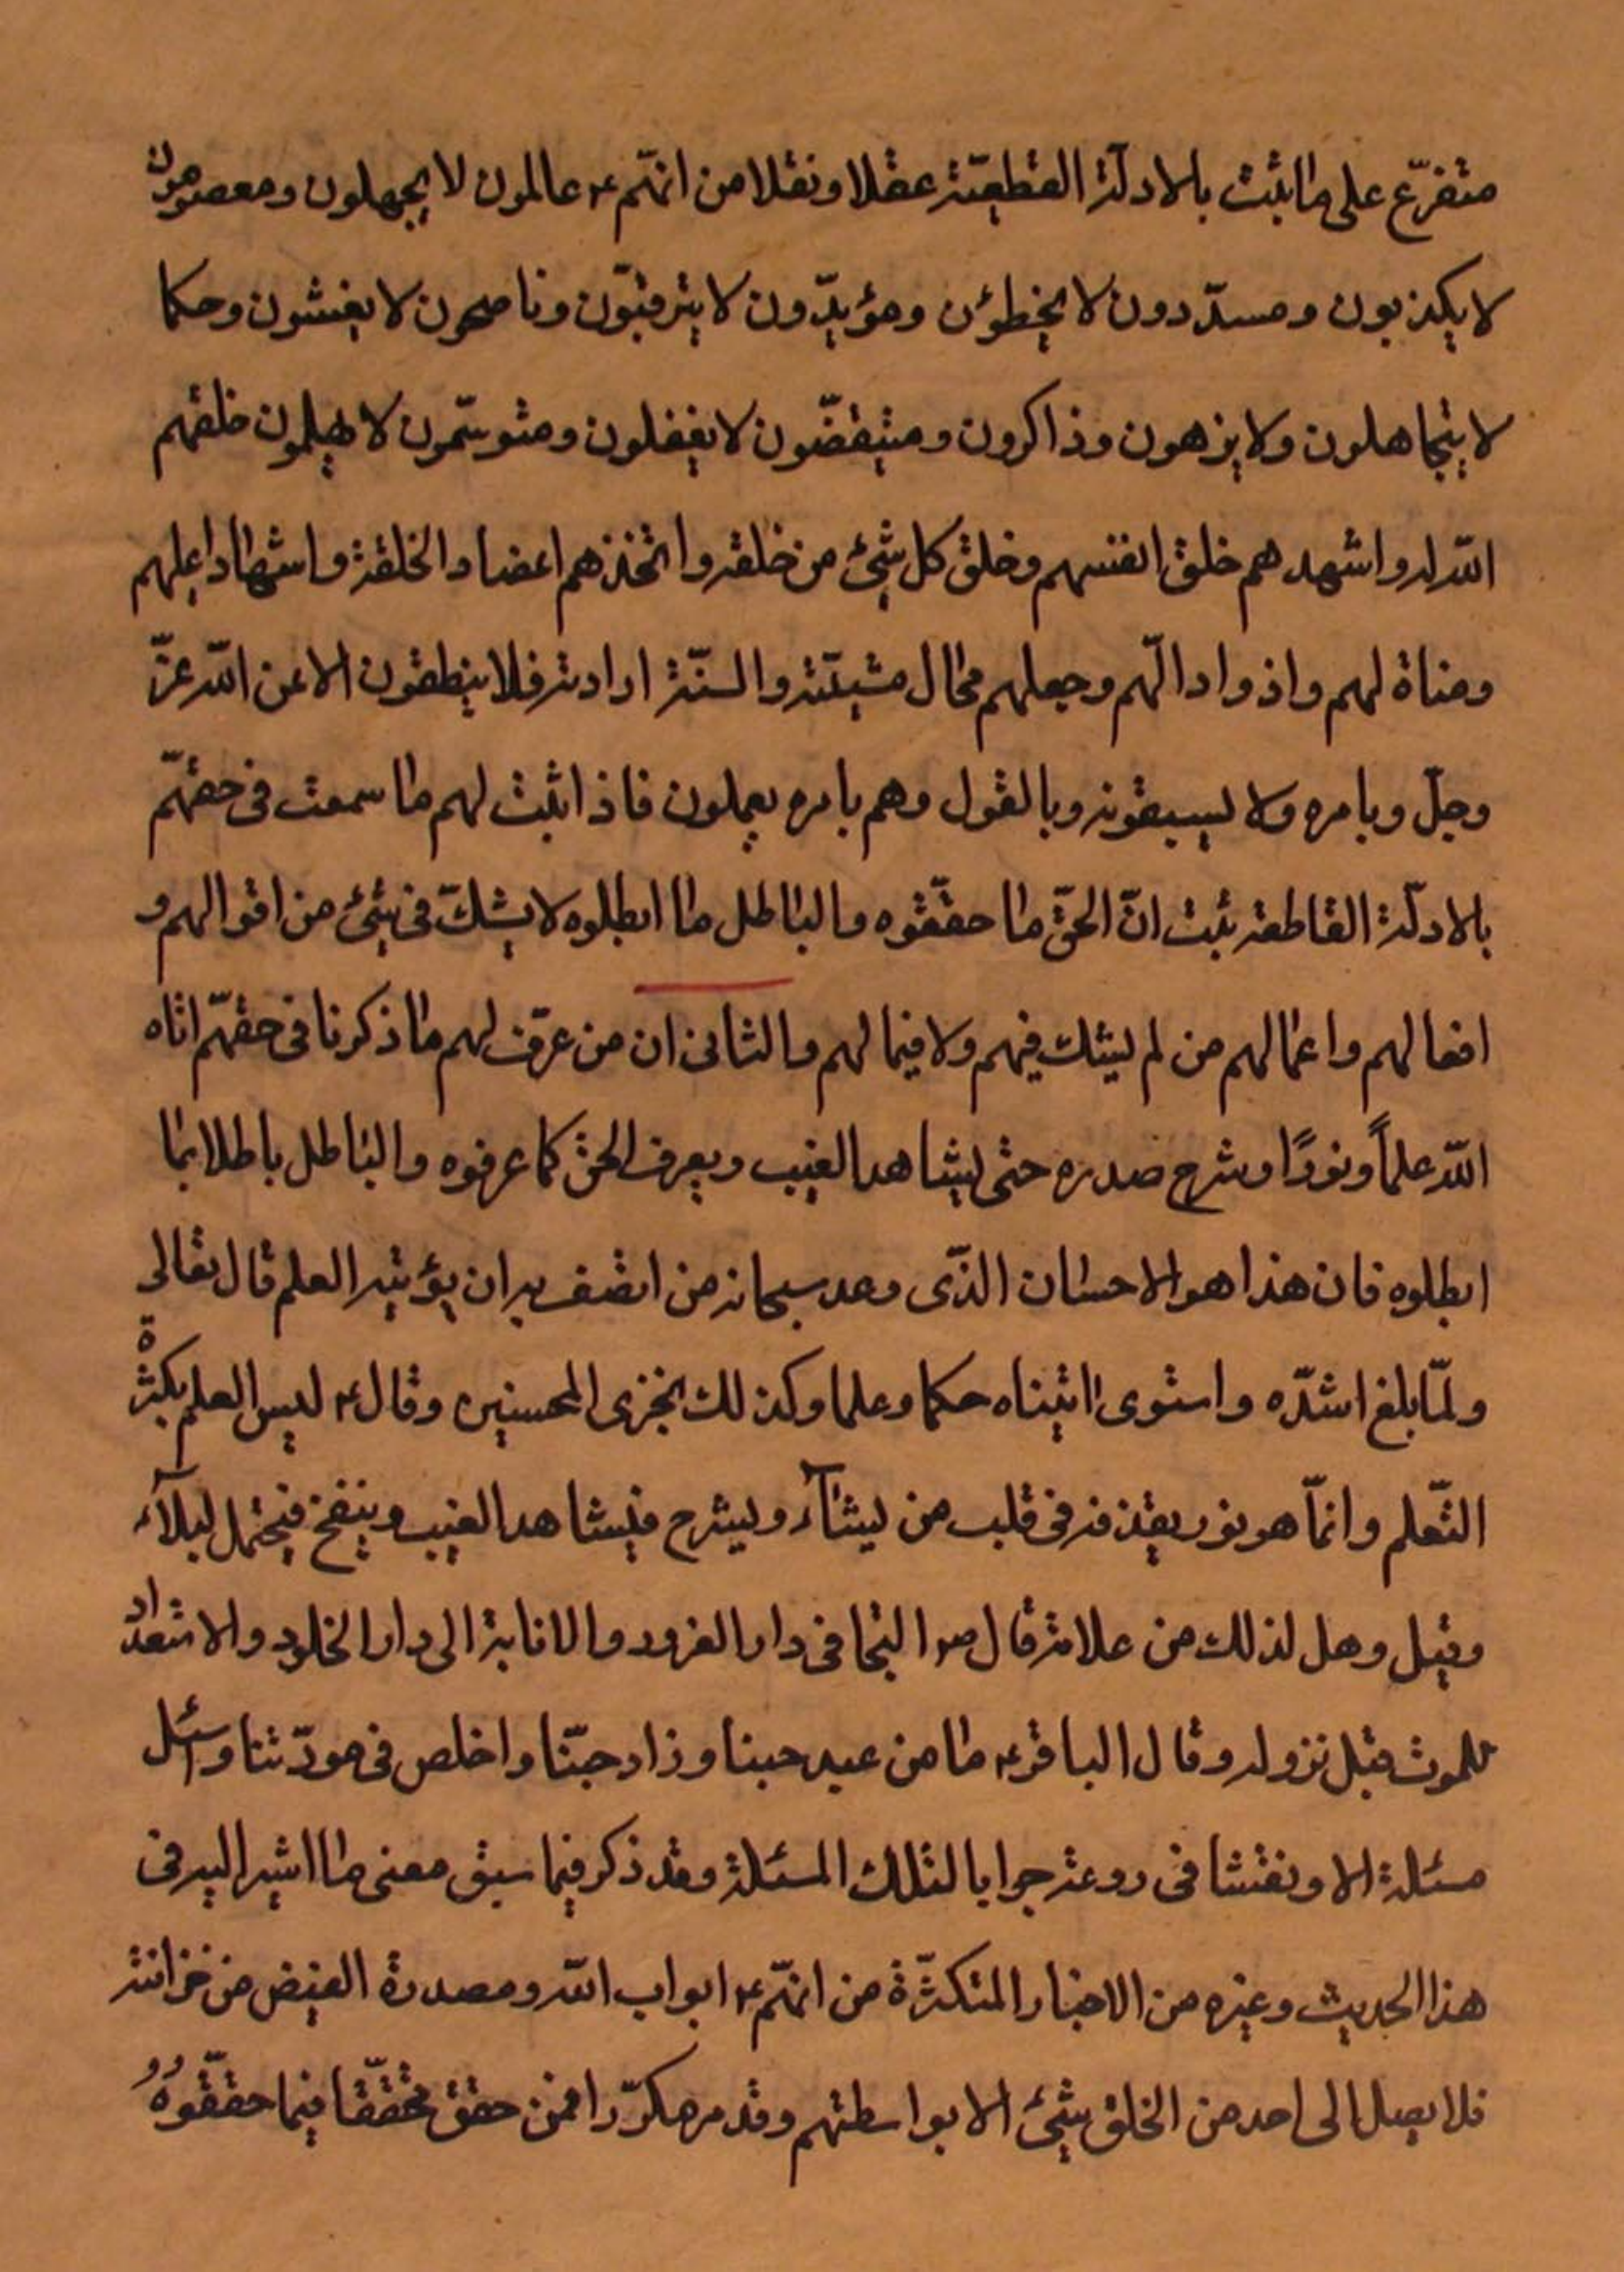 متفرّع على ما ثبت بالادلّة القطعيّة عقلا ونقلا من انهّم ع عالمون لا يجهلون ومعصومون
لا يكذبون ومسدّدون لا يخطؤن ومؤيدّون لا يترقبّون وناصحون لا يغشون وحكما
لا يتجاهلون ولا يزهون وذاكرون ومتيقضّون لا يغفلون ومتوسّمون لا يهملون خلقهم
اللّه له واشهدهم خلق انفسهم وخلق كل شئ من خلقه واتخذهم اعضاد الخلقة واشهادا عليهم
ومناة لهم واذوادا لّهم وجعلهم محال مشيتّه والسنّة ارادته فلا ينطقون الا عن اللّه عزّ
وجلّ وبامره ولا يسبقونه وبالقول وهم بامره يعملون فاذا ثبت لهم ما سمعت فى حقهّم
بالادلّة القاطعة ثبت انّ الحقّ ما حققّوه والباطل ما ابطلوه لا يشكّ فى شئ من اقوالهم و
افعالهم واعمالهم من لم يشك فيهم ولا فيما لهم والثانى ان من عرّف لهم ما ذكرنا فى حقهّم اتاه
اللّه علماً ونورًا وشرح صدره حتى يشاهد الغيب ويعرف الحق كما عرفوه والباطل باطلا بما
ابطلوه فان هذا هو الاحسان الذّى وعد سبحانه من اتصف به ان يؤتيه العلم قال تعالى
ولمّا بلغ اشدّه واستوى اتيناه حكما وعلما وكذلك نجزى المحسنين وقال ع ليس العلم بكثرة
التّعلم وانمّا هو نور يقذفه فى قلب من يشآء ويشرح فيشاهد الغيب وينفخ فيحتمل لبلآء
وقيل وهل لذلك من علامة قال ص التجا فى دار الغرور والانابة الى دار الخلود والاستعداد
للموت قبل نزوله وقال الباقر ع ما من عبد حبنا وزاد حبّنا واخلص فى مودّتنا وسئل
مسئلة الا ونفتنا فى روعه جوابا لتلك المسئلة وقد ذكر فيما سبق معنى ما اشير اليه فى
هذا الحديث وغيره من الاخبار المتكثرّة من انهّم ع ابواب اللّه ومصدرة الفيض من خزانته
فلا يصل الى احد من الخلق شئ الا بواسطتهم وقد مر مكرّرا فمن حقق محققّا فيما حققّوهُ